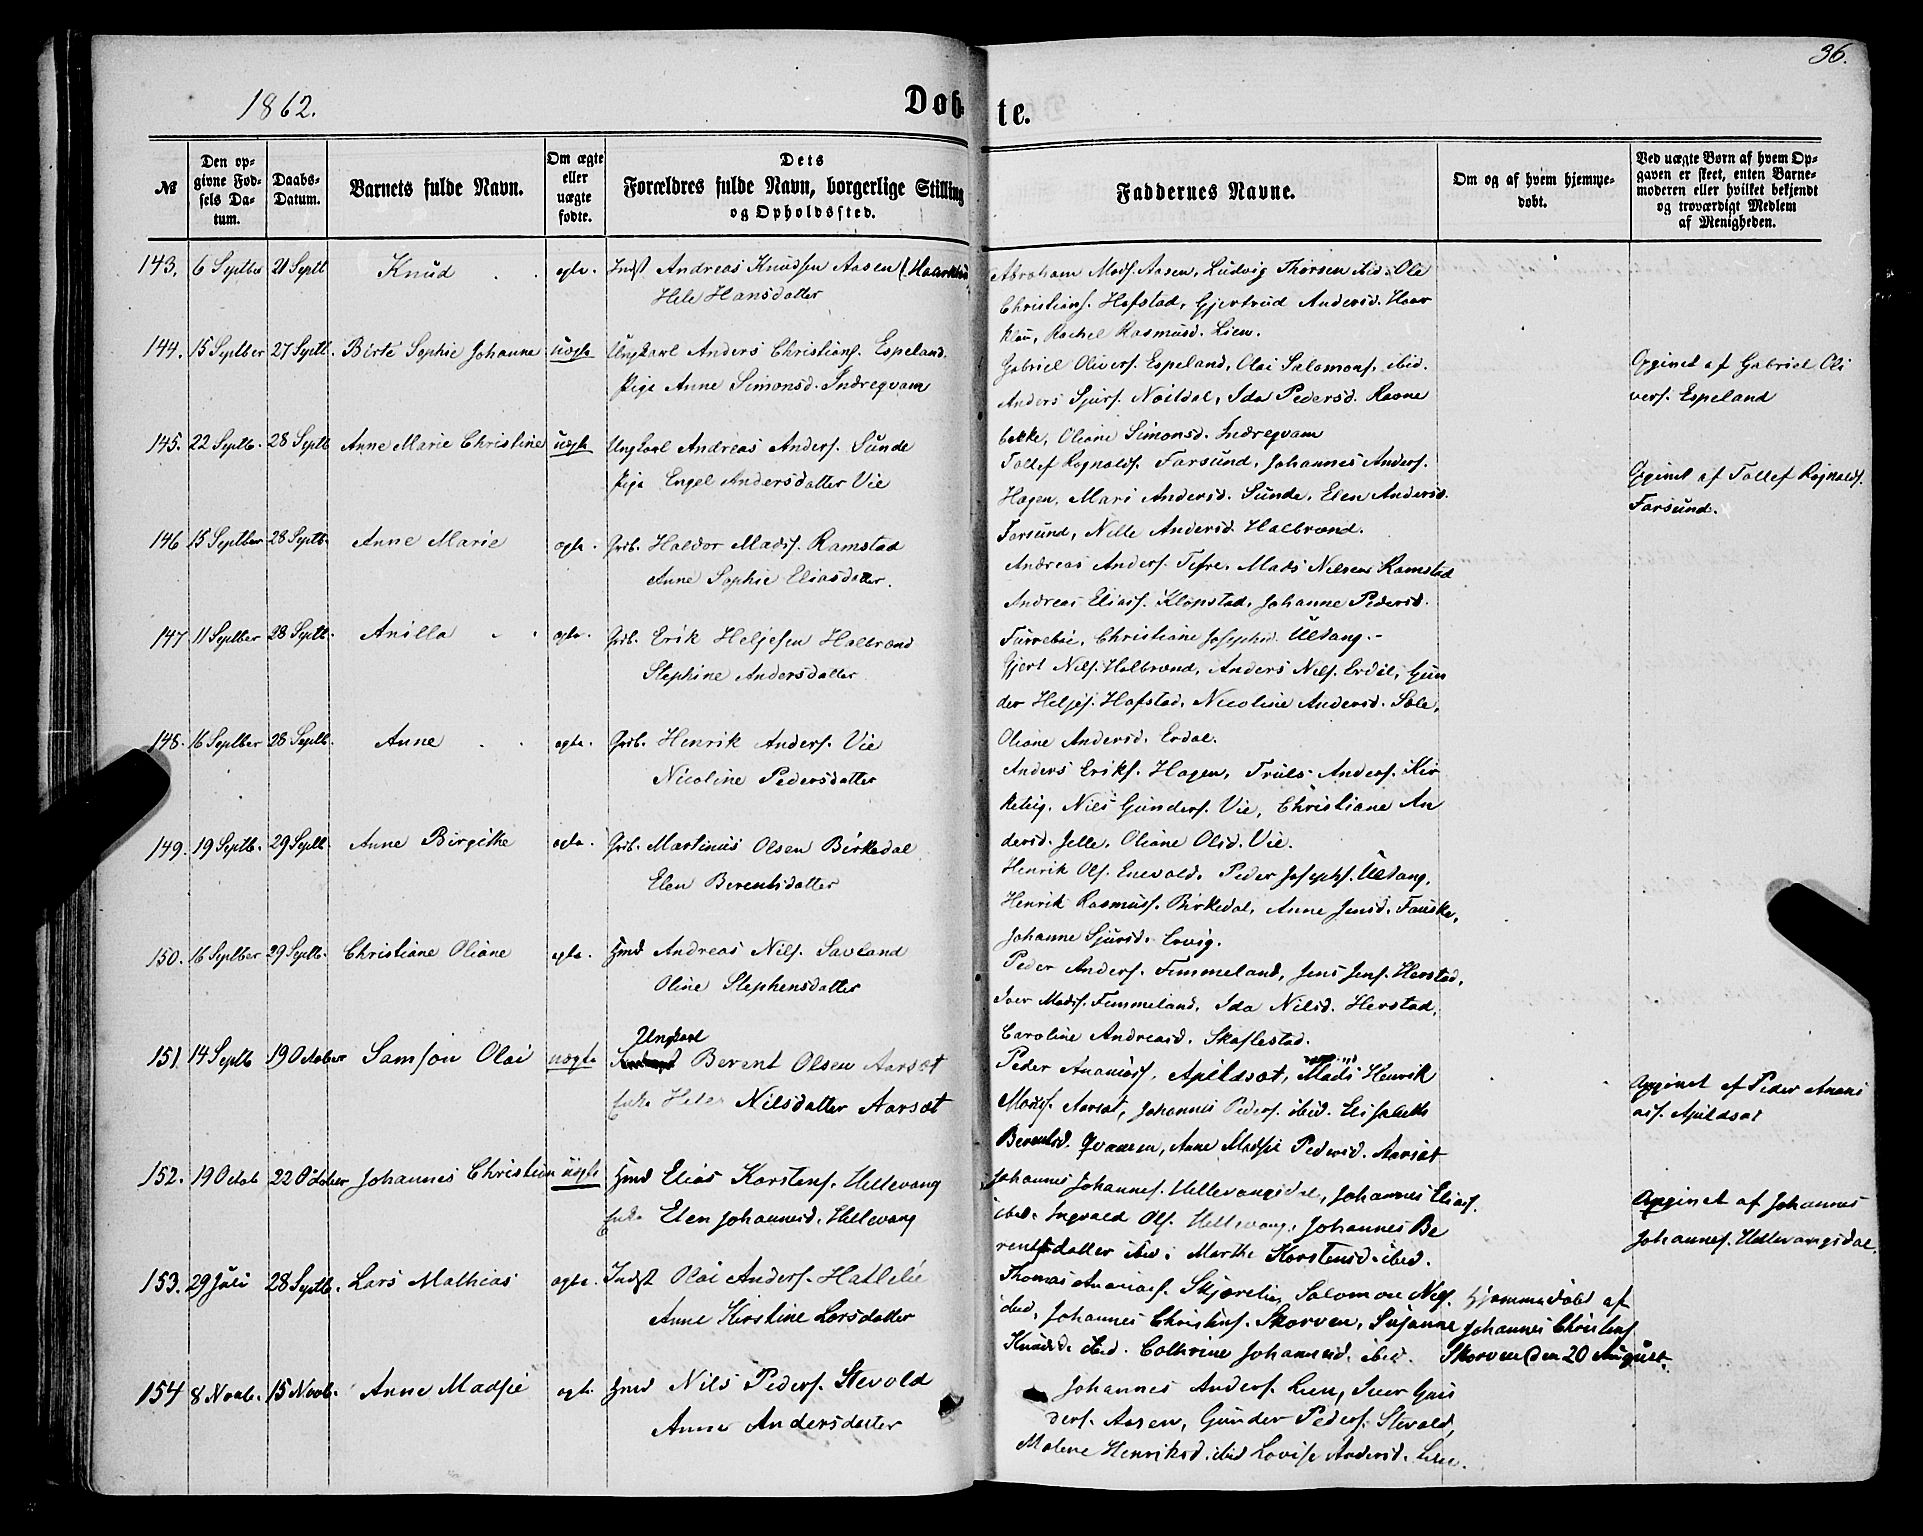 36.
1862.
Døbte.
№
Den opgivne Fødsels Datum.
Daabs-Datum.
Barnets fulde Navn.
Om ægte eller uægte fødte.
Dets Forældres fulde Navn, borgerlige Stilling og Opholdssted.
Faddernes Navne.
Om og af hvem hjemmedøbt.
Ved uægte Børn af hvem Opgaven er skeet, enten Barnemoderen eller hvilket bekjendt og troværdigt Medlem af Menigheden.
143. 6 Septber 21 Septb Knud ægte. Indst Andreas Knudsen Aasen
Hele Hansdatter
Abraham Mads. Aasen, Ludvig Thorsen ibid. Ole
Christians. Hafstad, Gjertrud Andersd. Haar
klau, Rachel Rasmusd. Lien.
144. 15 Septber 27 Septb. Birte Sophie Johanne uægte Ungkarl Anders Christians. Espeland.
Pige Anne Simonsd. Indreqvam
Gabriel Olivers. Espeland, Olai Salomons. ibid.
Anders Sjurs. Nøildal, Ida Pedersd. Ravne
bække, Oliane Simonsd. Indreqvam
Opgivet af Gabriel Oli
vers. Espeland
145. 22 Septb. 28 Septb Anne Marie Christine uægte Ungkarl Andreas Anders. Sunde
Pige Engel Andersdatter Vie
Tollef Rognalds. Farsund, Johannes Anders.
Hagen, Mari Andersd. Sunde, Elen Andersd.
Farsund, Nille Andersd. Halbrend.
Opgivet af Tollef Rognalds.
Farsund.
146 15 Septber 28 Septb. Anne Marie ægte. Grdb. Haldor Mads. Ramstad
Anne Sophie Eliasdatter.
Andreas Anders. Tefre, Mads Nilsen Ramstad
Andreas Elias. Klopstad, Johanne Pedersd.
Furrebøe, Christiane Josephsd. Ultang.
147 11 Septber 28 Septb. Anilla ægte. Grdb. Erik Heljesen Halbrend
Stephine Andersdatter
Gjert Nils. Halbrend, Anders Nils. Erdal, Gun
der Heljes. Hafstad, Nicoline Andersd. Sole,
Oliane Andersd. Erdal.
148. 16 Septber 28 Septb. Anne ægte. Grdb. Henrik Anders. Vie
Nicoline Pedersdatter
Anders Eriks. Hagen, Truls Anders. Kir
keteig, Nils Gunders. Vie, Christiane An
dersd. Jelle, Oliane Olsd. Vie.
149. 19 Septb. 29 Septb. Anne Birgithe ægte Grdb. Martinus Olsen Birkedal
Elen Berentsdatter
Henrik Ols. Enevald, Peder Josephs. Ultang,
Henrik Rasmus. Birkedal, Anne Jensd. Fauske,
Johanne Sjursd. Ervig.
150. 16 Septber 29 Septb. Christiane Oliane ægte. Hmd Andreas Nils. Savland
Oline Stephensdatter
Peder Anders. Fimmeland, Jens Jens. Herstad,
Iver Mads. Fimmeland, Ida Nilsd. Herstad,
Caroline Andreasd. Skaflestad.
151. 14 Septb 19 October Samson Olai uægte Ungkarl
Berent Olsen Aarsæt
Enke Helee Nilsdatter Aarsæt
Peder Ananias. Apildsæt, Mads Henrik
Mads. Aarsæt, Johannes Peders. ibid. Elisabeth
Berentsd. Qvammen, Anne Madsie Pedersd. Aarsæt
Opgivet af Peder Anani
as. Apildsæt
152. 19 Octob 22 October Johannes Christian uægte Hmd Elias Karstens. Hellevang
Enke Elen Johannesd. Hellevang
Johannes Johannes. Hellevangsdal, Johannes Elias.
ibid. Ingvald Ols. Hellevang, Johannes Be
rentsdatter ibid. Marthe Karstensd. ibid.
Opgivet af Johannes
Johannes. Hellevangsdal.
153. 29 Juli 28 Septb. Lars Mathias ægte. Indst Olai Anders. Hatlelie
Anne Kirstine Larsdatter
Thomas Ananias. Skjærelie, Salomon Nils.
ibid. Johannes Christens. Skorven, Susanne
Knudsd. ibid. Cathrine Johannesd. ibid.
Hjemmedøbt af
Johannes Christens
Skorven den 20 August.
154 8 Novb. 15 Novb. Anne Madsie ægte Hmd Nils Peders. Stevold
Anne Andersdatter
Johannes Anders. Lien, Iver Gun
ders. Aasen, Gunder Peders. Stevold,
Malene Henriksd. ibid Lovise Andersd. Lien.